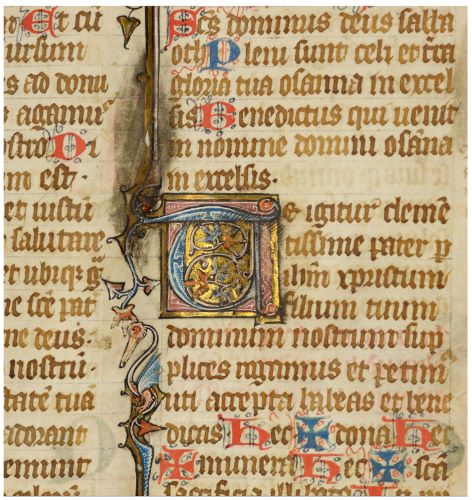 et cu
ursum
s ad donu
agamus
ostro Di
m est.
et iustu
salutare
et ubiq; g
ne sce pat
ne deus.
nostru.
tate tua
dorant
emunt
Scs dominus deus saba
oth Pleni sunt celi et tra
gloria tua osanna in excel
sis Benedictus qui uenit
in nomine domini osana
in excelsis.
Te igitur cleme
tissime pater p
ihm xpistum
filium tuum
dominum nostrum sup
plices rogamus et petim
uti accepta habeas et bene
dicas Hec ✠ dona Hec
munera Hec ✠ sca
sacrificia